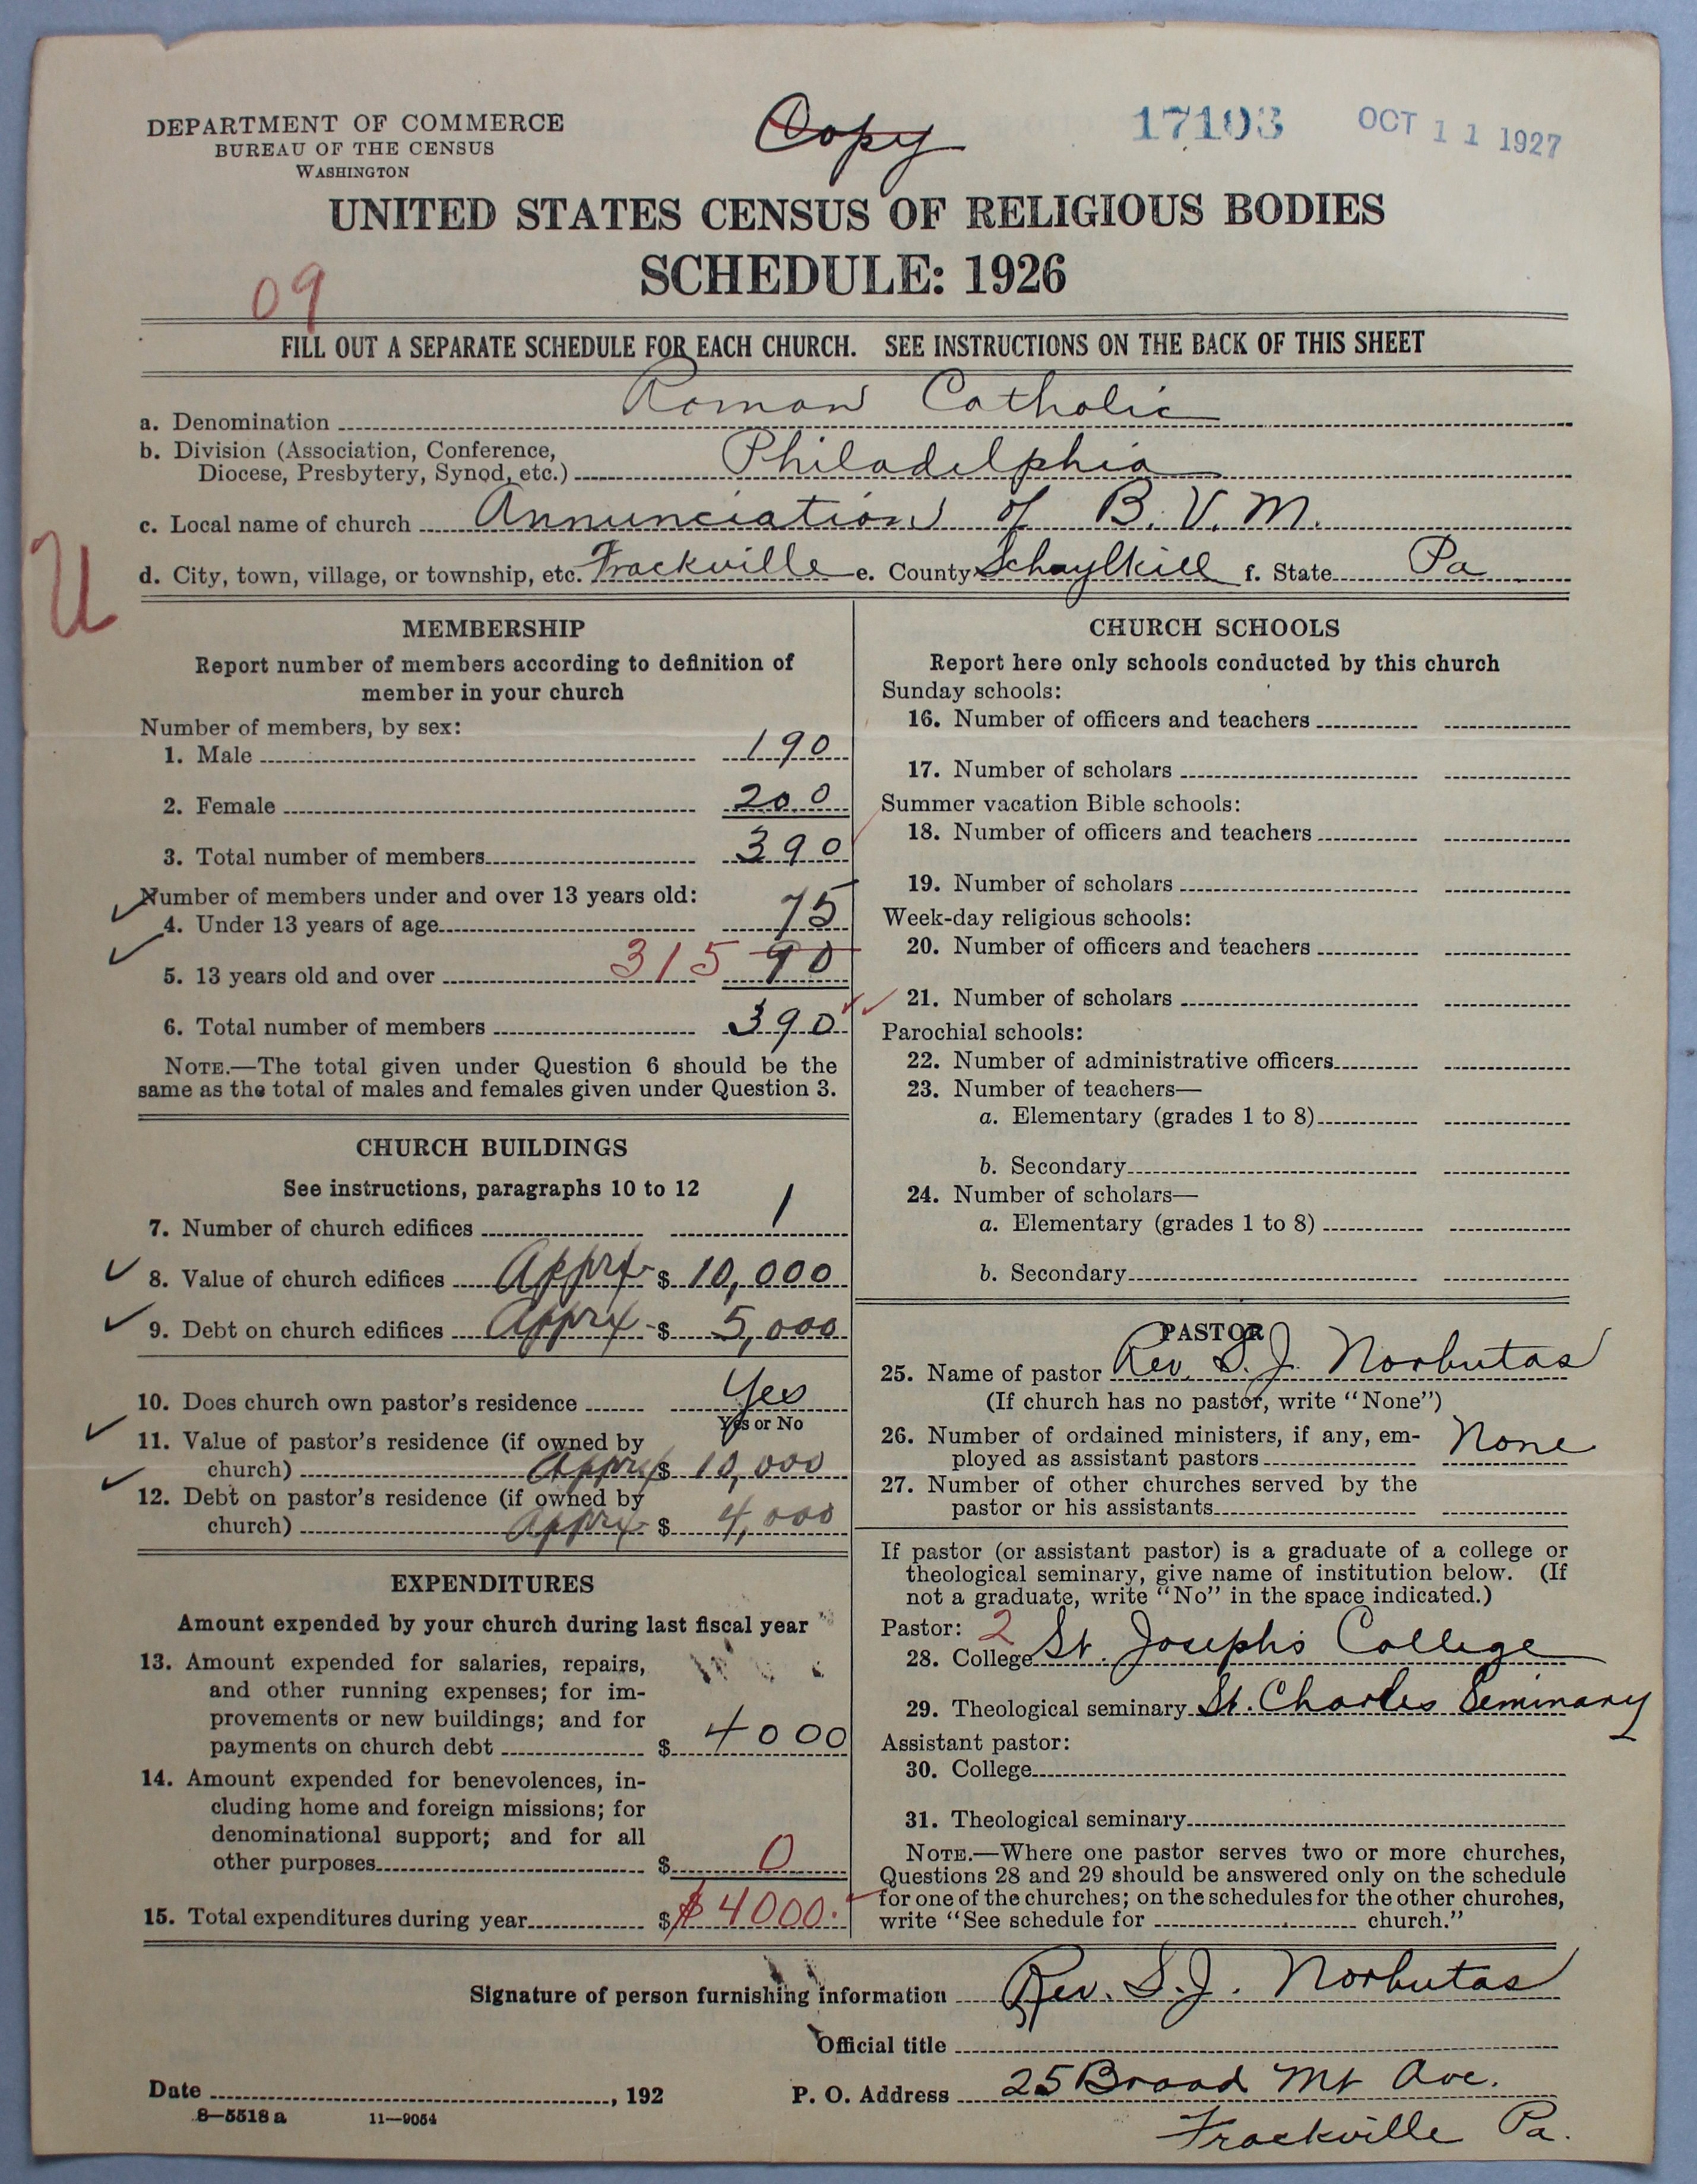 DEPARTMENT OF COMMERCE
BUREAU OF THE CENSUS
WASHINGTON
Copy
17103
OCT 11 1927
UNITED STATES CENSUS OF RELIGIOUS BODIES
SCHEDULE: 1926
09
FILL OUT A SEPARATE SCHEDULE FOR EACH CHURCH. SEE INSTRUCTIONS ON THE BACK OF THIS SHEET
a. Denomination Roman Catholic
b. Division (Association, Conference,
Diocese, Presbytery, Synod, etc.) Philadelphia
c. Local name of church Annunciation of B. V. M.
d. City, town, village, or township, etc. Frackville e. County Schuylkill f. State Pa
U
MEMBERSHIP
Report number of members according to definition of
member in your church
Number of members, by sex:
1. Male 190
2. Female 200
3. Total number of members 390
Number of members under and over 13 years old:
4. Under 13 years of age 75
5. 13 years old and over 315 90
6. Total number of members 390
NOTE.—The total given under Question 6 should be the
same as the total of males and females given under Question 3.
CHURCH BUILDINGS
See instructions, paragraphs 10 to 12
7. Number of church edifices 1
8. Value of church edifices Apprx $ 10,000
9. Debt on church edifices Apprx $ 5,000
10. Does church own pastor's residence Yes
Yes or No
11. Value of pastor's residence (if owned by
church) Apprx $ 10,000
12. Debt on pastor's residence (if owned by
church) Apprx $ 4,000
EXPENDITURES
Amount expended by your church during last fiscal year
13. Amount expended for salaries, repairs,
and other running expenses; for im-
provements or new buildings; and for
payments on church debt $ 4000
14. Amount expended for benevolences, in-
cluding home and foreign missions; for
denominational support; and for all
other purposes $ 0
15. Total expenditures during year $ $4000.
CHURCH SCHOOLS
Report here only schools conducted by this church
Sunday schools:
16. Number of officers and teachers
17. Number of scholars
Summer vacation Bible schools:
18. Number of officers and teachers
19. Number of scholars
Week-day religious schools:
20. Number of officers and teachers
21. Number of scholars
Parochial schools:
22. Number of administrative officers
23. Number of teachers—
a. Elementary (grades 1 to 8)
b. Secondary
24. Number of scholars—
a. Elementary (grades 1 to 8)
b. Secondary
PASTOR
25. Name of pastor Rev. S. J. Norbutas
(If church has no pastor, write "None")
26. Number of ordained ministers, if any, em-
ployed as assistant pastors None
27. Number of other churches served by the
pastor or his assistants
If pastor (or assistant pastor) is a graduate of a college or
theological seminary, give name of institution below. (If
not a graduate, write "No" in the space indicated.)
Pastor: 2
28. College St. Joseph's College
29. Theological seminary St. Charles Seminary
Assistant pastor:
30. College
31. Theological seminary
NOTE.—Where one pastor serves two or more churches,
Questions 28 and 29 should be answered only on the schedule
for one of the churches; on the schedules for the other churches,
write "See schedule for church."
Signature of person furnishing information Rev. S. J. Norbutas
Official title
Date , 192 P. O. Address 25 Broad Mt Ave.
Frackville Pa.
8—5518 a 11—9054